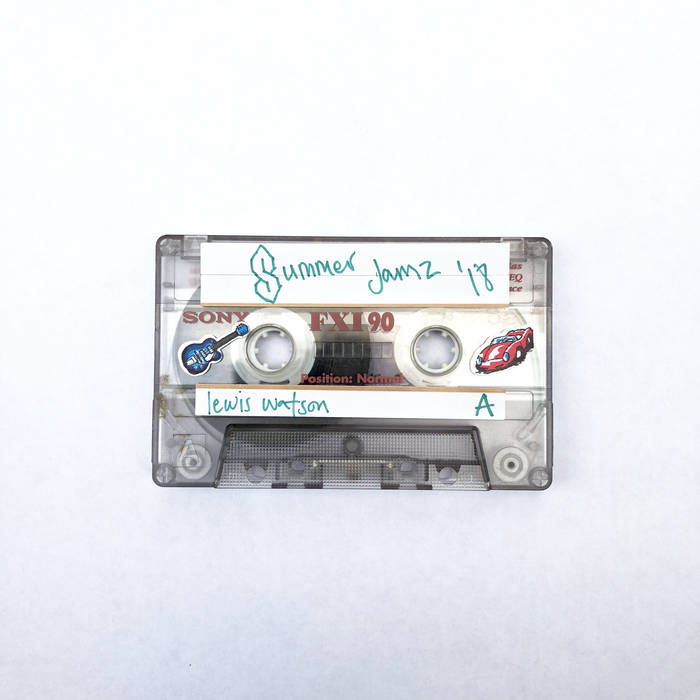 Summer Jamz '18
EQ
SONY FXI 90
Position: Normal
lewis watson A
A